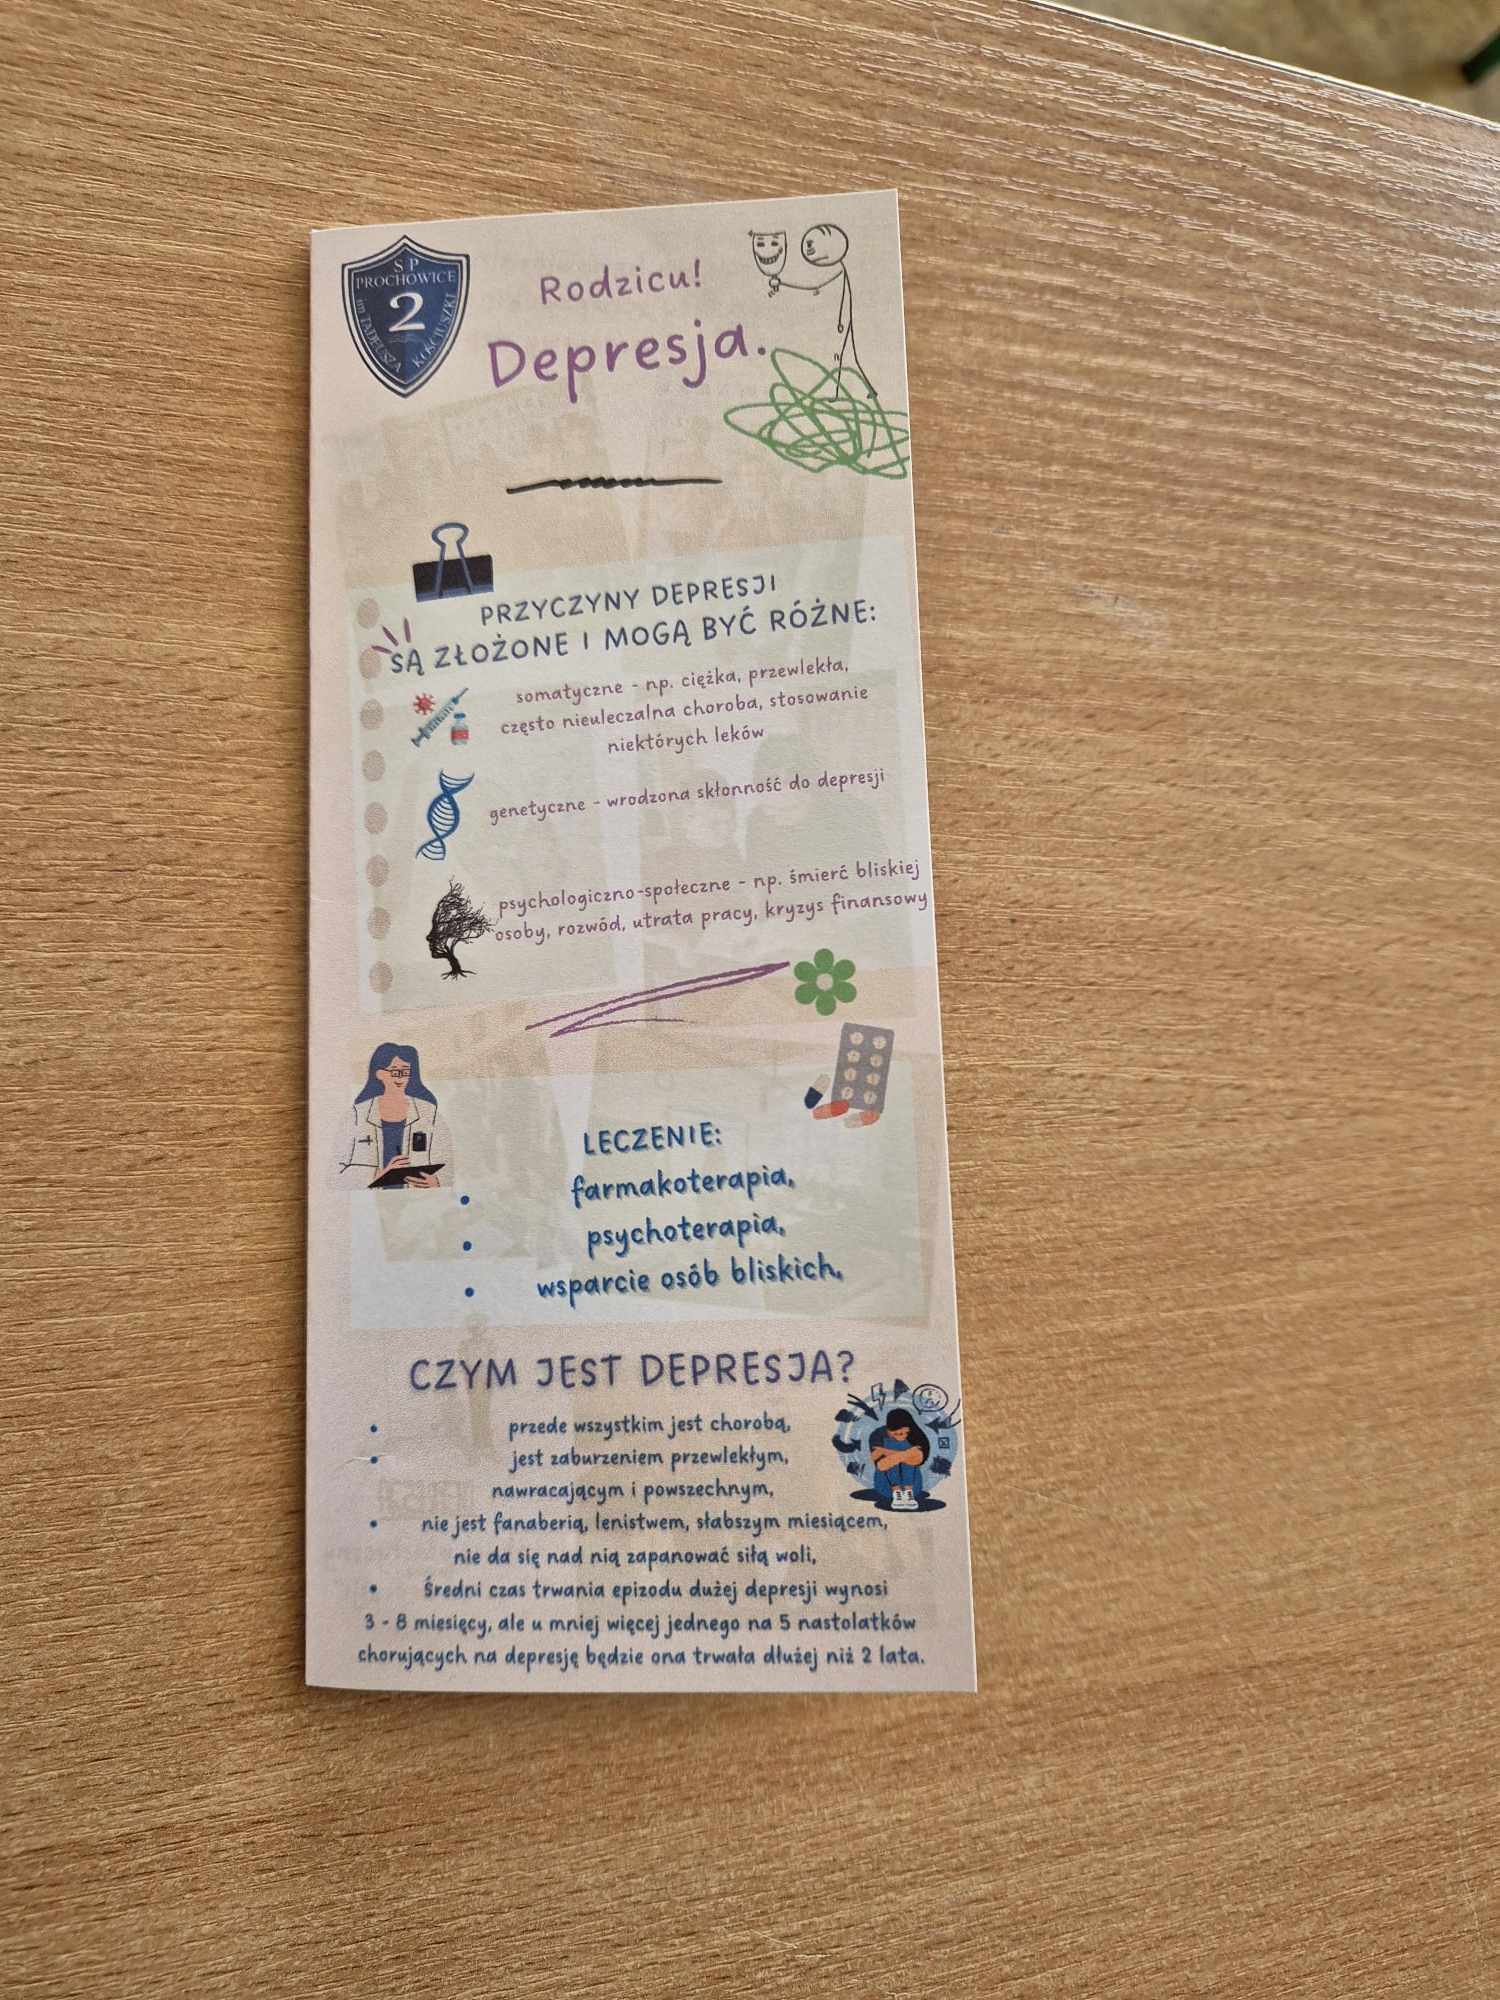 S P
PROCHOWICE
2
im TADEUSZA KOŚCIUSZKI
Rodzicu!
Depresja.
PRZYCZYNY DEPRESJI
SĄ ZŁOŻONE I MOGĄ BYĆ RÓŻNE:
somatyczne - np. ciężka, przewlekła,
często nieuleczalna choroba, stosowanie
niektórych leków
genetyczne - wrodzona skłonność do depresji
psychologiczno-społeczne - np. śmierć bliskiej
osoby, rozwód, utrata pracy, kryzys finansowy
LECZENIE:
• farmakoterapia,
• psychoterapia,
• wsparcie osób bliskich,
CZYM JEST DEPRESJA?
• przede wszystkim jest chorobą,
• jest zaburzeniem przewlekłym,
nawracającym i powszechnym,
• nie jest fanaberią, lenistwem, słabszym miesiącem,
nie da się nad nią zapanować siłą woli,
• Średni czas trwania epizodu dużej depresji wynosi
3 - 8 miesięcy, ale u mniej więcej jednego na 5 nastolatków
chorujących na depresję będzie ona trwała dłużej niż 2 lata.